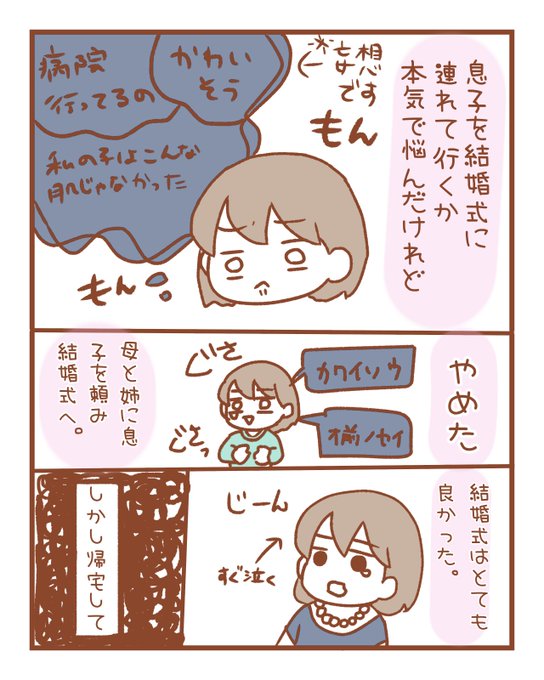 息子を結婚式に
連れて行くか
本気で悩んだけれど
想
妄
です
もん
かわい
そう
病院
行ってるの
私の子はこんな
肌じゃなかった
もん
やめた
カワイソウ
オ前ノセイ
ごさ
ごさっ
母と姉に息
子を頼み
結婚式へ。
結婚式はとても
良かった。
じーん
すぐ泣く
しかし帰宅して